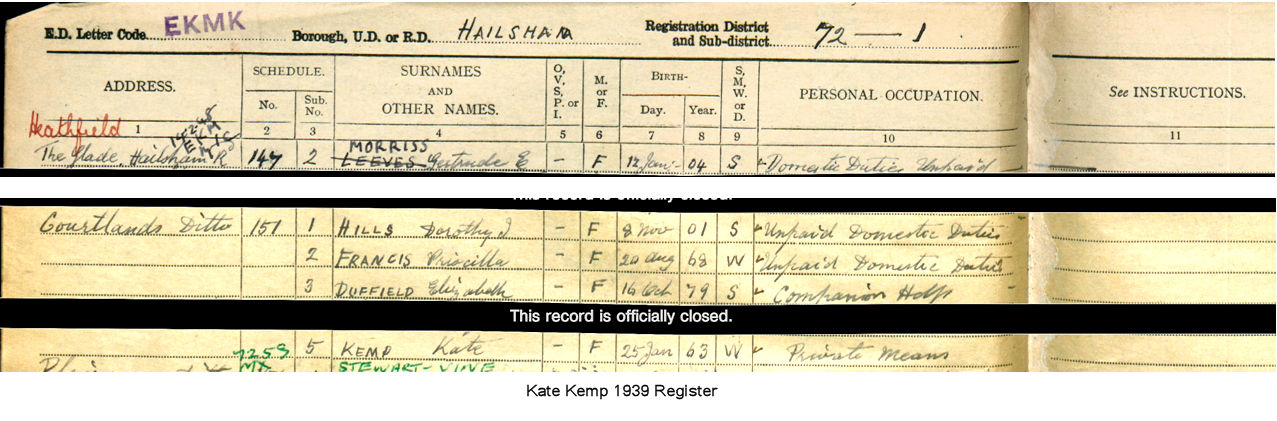 E.D. Letter Code EKMK Borough, U.D. or R.D. HAILSHAM Registration District and Sub-district 72 — 1
ADDRESS. SCHEDULE. No. Sub. No. SURNAMES AND OTHER NAMES. O, V, S, P. or I. M. or F. BIRTH- Day. Year. S, M, W. or D. PERSONAL OCCUPATION. See INSTRUCTIONS.
1 2 3 4 5 6 7 8 9 10 11
Heathfield
MORRISS
The Glade, Hailsham Rd 147 2 LEEVES Gertrude E - F 12 Jan 04 S Domestic Duties Unpaid
This record is officially closed.
Courtlands Ditto 151 1 HILLS Dorothy I - F 8 Nov 01 S Unpaid Domestic Duties
2 FRANCIS Priscilla - F 20 Aug 68 W Unpaid Domestic Duties
3 DUFFIELD Elizabeth - F 16 Oct 79 S Companion Help
This record is officially closed.
5 KEMP Kate - F 25 Jan 63 W Private Means
STEWART-VINE
Kate Kemp 1939 Register